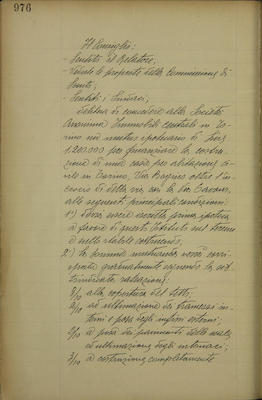 976
Il Consiglio:
- Sentito il Relatore;
- Vedute le proposte della Commissione di
Sconto;
- Sentiti i Sindaci;
delibera di concedere alla Società
Anonima Immobili centrali in To-
rino un mutuo ipotecario di Lire
1.200.000 per finanziare la costru-
zione di una casa per abitazioni ci-
vili in Torino, Via
della via con la Via Cavour,
alle seguenti principali condizioni:
1°) prima ipoteca
a favore di questo Istituto sul terreno
e sullo stabile costruendo;
2°) la somma mutuanda verrà corri-
sposta gradualmente secondo la sot-
toindicata
3/10 alla copertura del tetto;
2/10 ad ultimazione dei tramezzi in-
terni e posa degli infissi esterni;
2/10 a posa dei pavimenti, delle scale,
ed ultimazione degli intonaci;
3/10 a costruzione completamente